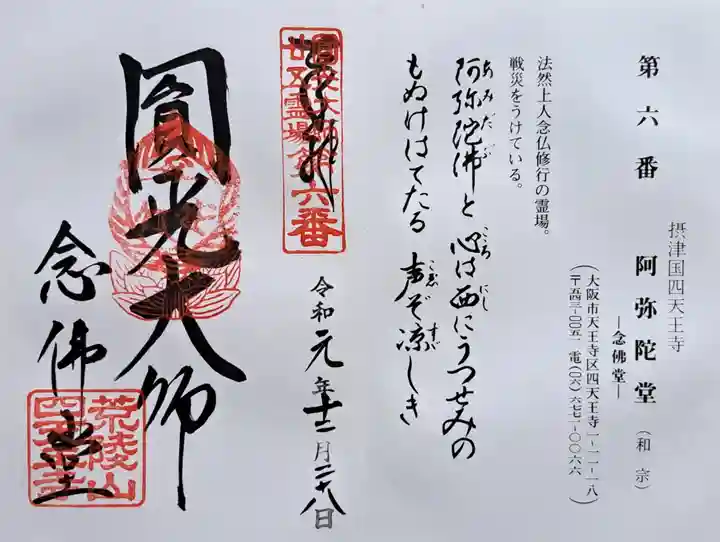 第六番
摂津国四天王寺
阿弥陀堂（和宗）
―念佛堂―
（大阪市天王寺区四天王寺一-一一-一八
（〒五四三-〇〇五一 電（〇六）六七七一-〇〇六六）
法然上人念仏修行の霊場。
戦災をうけている。
阿弥陀佛と 心は西にうつせみの
あみだぶ こころ にし
もぬけはてたる 声ぞ凉しき
こゑ すゞ
廿五霊場第六番
圓光大師
念佛堂
荒陵山
四天王寺
令和元年十二月二十八日